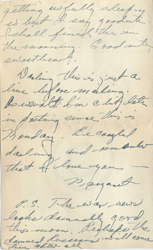 Getting awfully sleepy
so will to say goodnite
I shall finish this in
the morning. Good nite,
sweetheart.
Darling this is just a
line before mailing.
be a bit late
in mailing since this is
Monday. Be careful
darling and remember
that I love you —
Margaret
P.S. The war news
looks damnably good
this noon. Perhaps the
damned